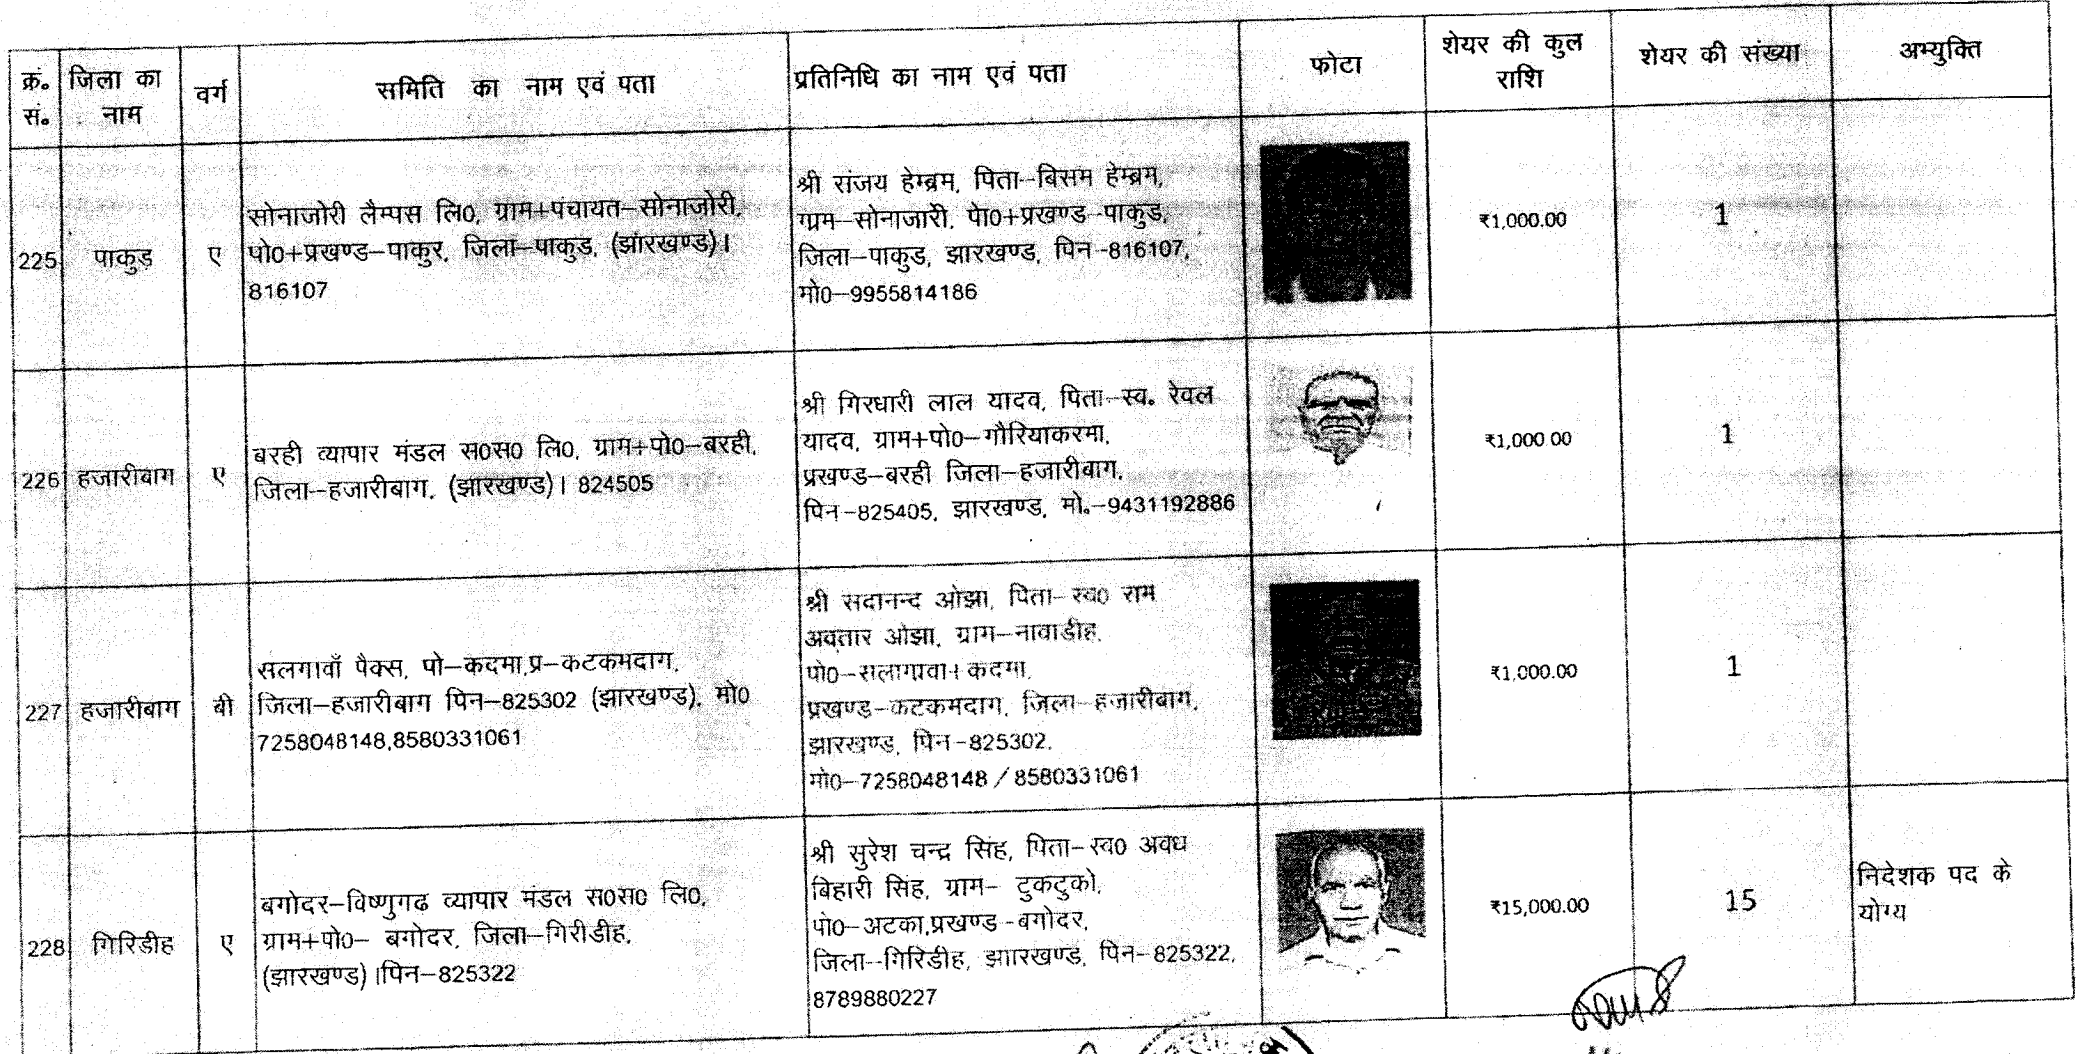 क्रं॰ सं॰
जिला का नाम
वर्ग
समिति का नाम एवं पता
प्रतिनिधि का नाम एवं पता
फोटा
शेयर की कुल राशि
शेयर की संख्या
अभ्युक्ति
225
पाकुड़
ए
सोनाजोरी लैम्पस लि0, ग्राम+पंचायत–सोनाजोरी,
पो0+प्रखण्ड–पाकुर, जिला–पाकुड, (झारखण्ड)।
816107
श्री संजय हेम्ब्रम, पिता–बिसम हेम्ब्रम,
ग्राम–सोनाजारी, पो0+प्रखण्ड–पाकुड,
जिला–पाकुड, झारखण्ड, पिन–816107,
मो0–9955814186
₹1,000.00
1
226
हजारीबाग
ए
बरही व्यापार मंडल स0स0 लि0, ग्राम+पो0–बरही,
जिला–हजारीबाग, (झारखण्ड)। 824505
श्री गिरधारी लाल यादव, पिता–स्व॰ रेवल
यादव, ग्राम+पो0–गौरियाकरमा,
प्रखण्ड–बरही जिला–हजारीबाग,
पिन–825405, झारखण्ड, मो॰–9431192886
₹1,000.00
1
227
हजारीबाग
बी
सलगावाँ पैक्स, पो–कदमा,प्र–कटकमदाग,
जिला–हजारीबाग पिन–825302 (झारखण्ड), मो0
7258048148,8580331061
श्री सदानन्द ओझा, पिता–स्व0 राम
अवतार ओझा, ग्राम–नावाडीह,
पो0–सलागावा+कदमा,
प्रखण्ड–कटकमदाग, जिला–हजारीबाग,
झारखण्ड, पिन–825302,
मो0–7258048148/8580331061
₹1,000.00
1
228
गिरिडीह
ए
बगोदर–विष्णुगढ व्यापार मंडल स0स0 लि0,
ग्राम+पो0– बगोदर, जिला–गिरीडीह,
(झारखण्ड)।पिन–825322
श्री सुरेश चन्द्र सिंह, पिता–स्व0 अवध
बिहारी सिह, ग्राम– टुकटुको,
पो0–अटका,प्रखण्ड–बगोदर,
जिला–गिरिडीह, झाारखण्ड, पिन–825322,
8789880227
₹15,000.00
15
निदेशक पद के
योग्य